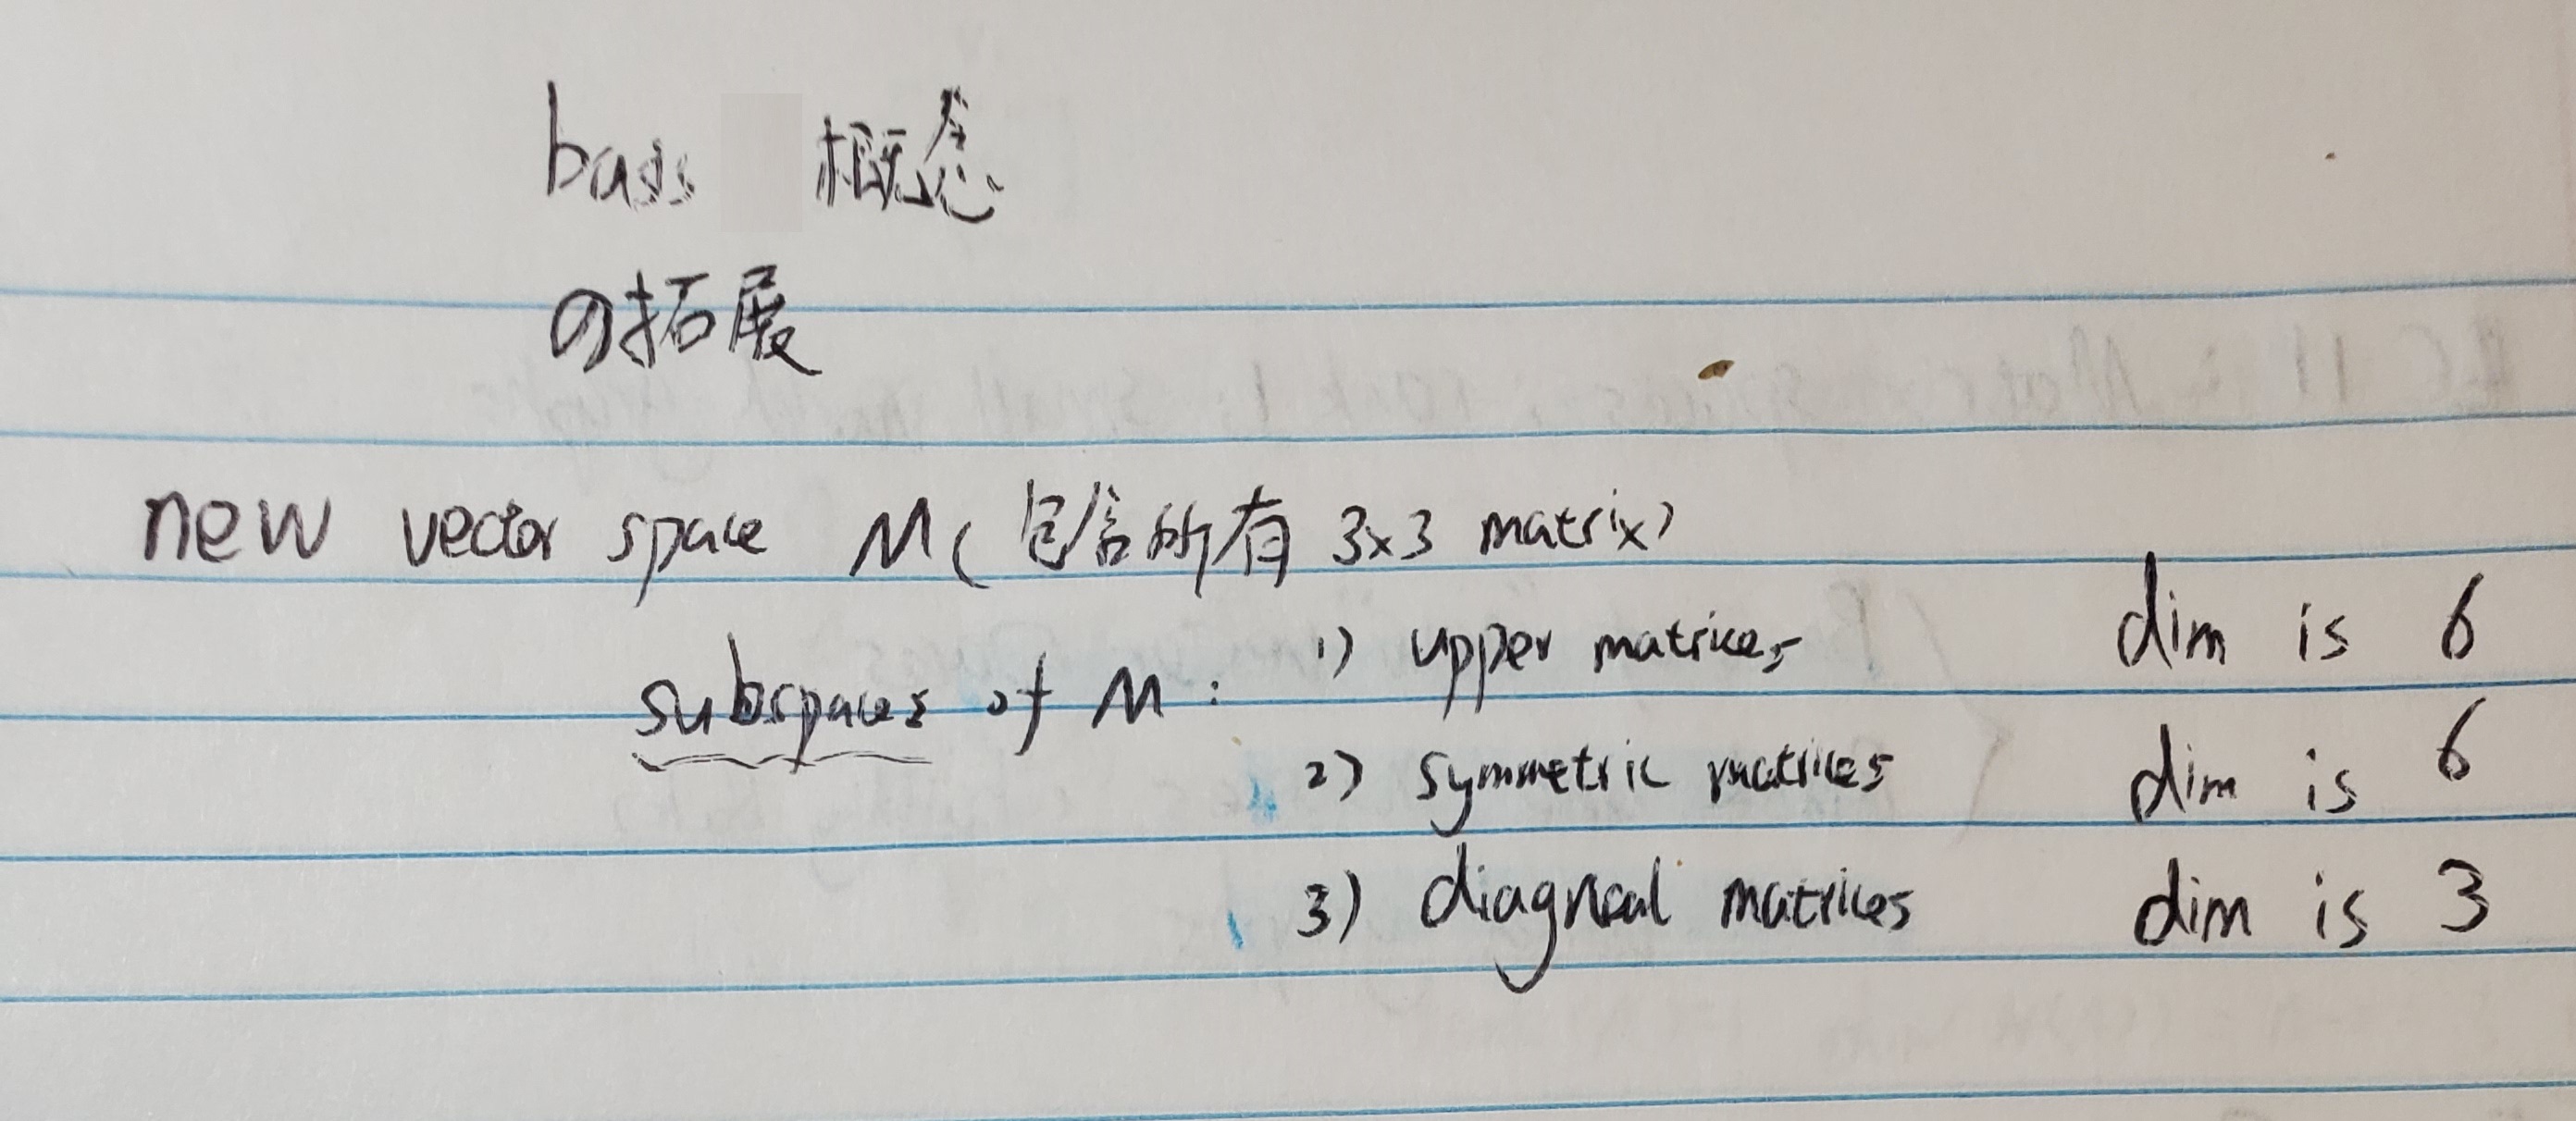 basis 概念
の拓展
new vector space M (包含所有 3x3 matrix)
subspaces of M : 1) upper matrices dim is 6
2) symmetric matrices dim is 6
3) diagnoal matrices dim is 3